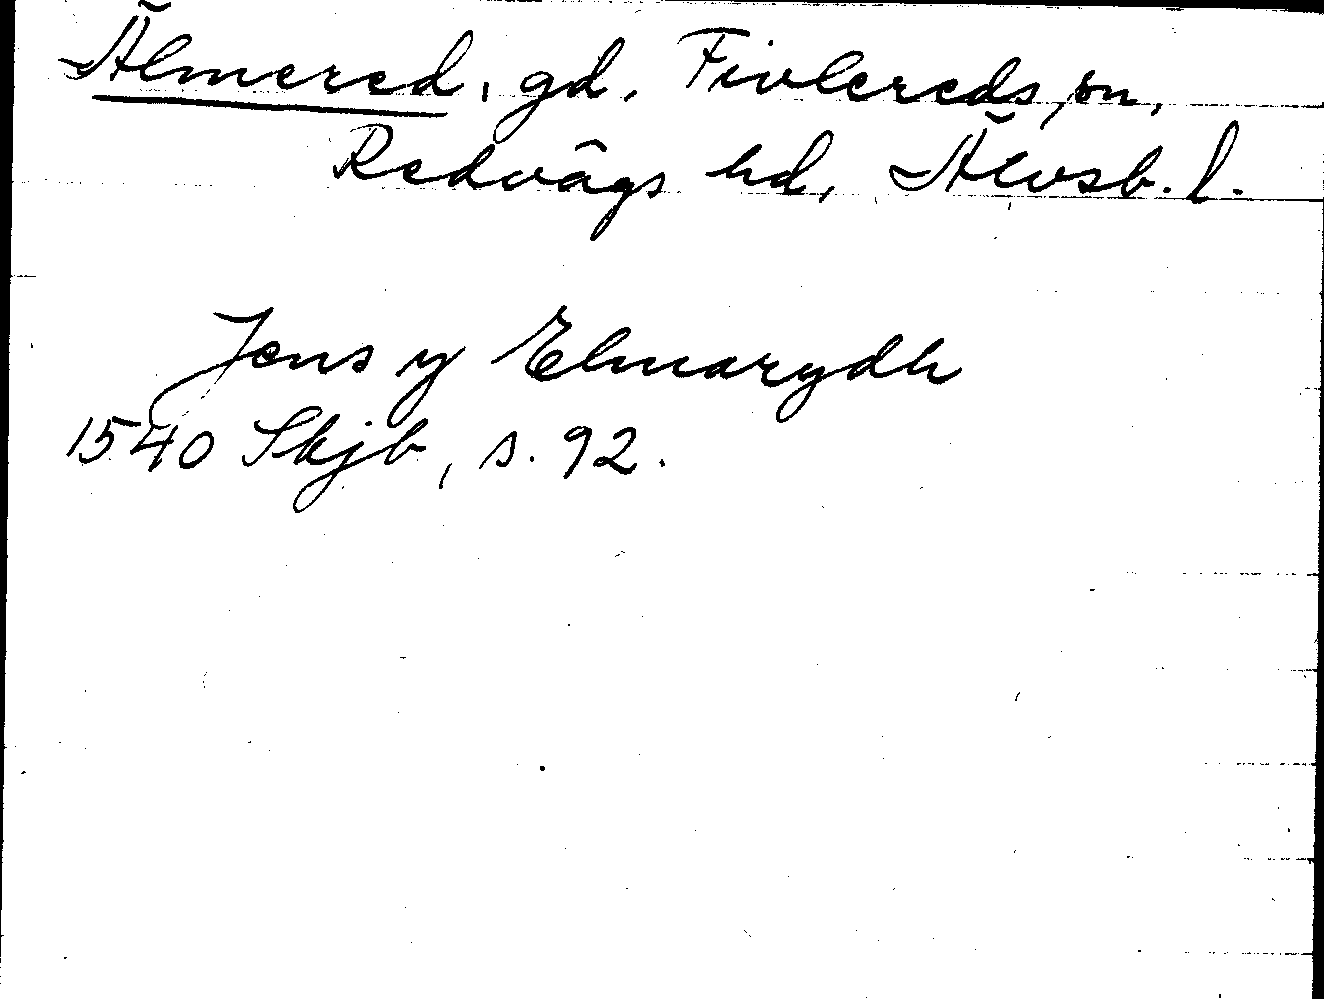 Älmered, gd, Fivlereds sn,
Redvägs hd, Älvsb. l.
Jens y Elmarydh
1540 Skjb, s. 92.